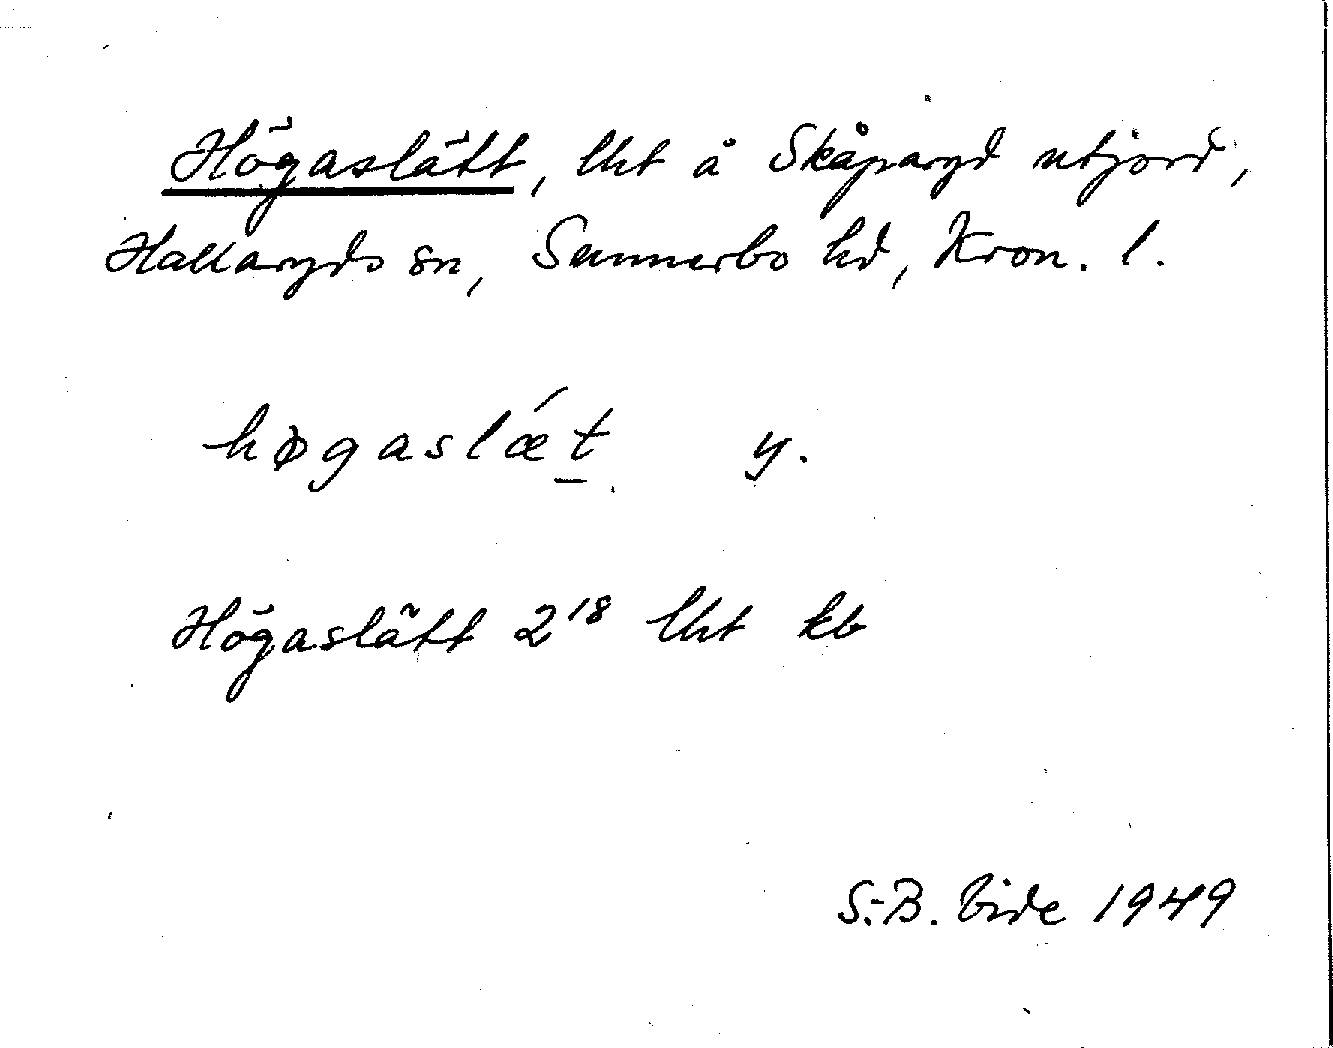 Högaslätt, lht å Skåparyd utjord,
Hallaryds sn, Sunnerbo hd, Kron. l.
høgaslǽt y.
Högaslätt 2¹⁸ lht kb
S.-B. Vide 1949